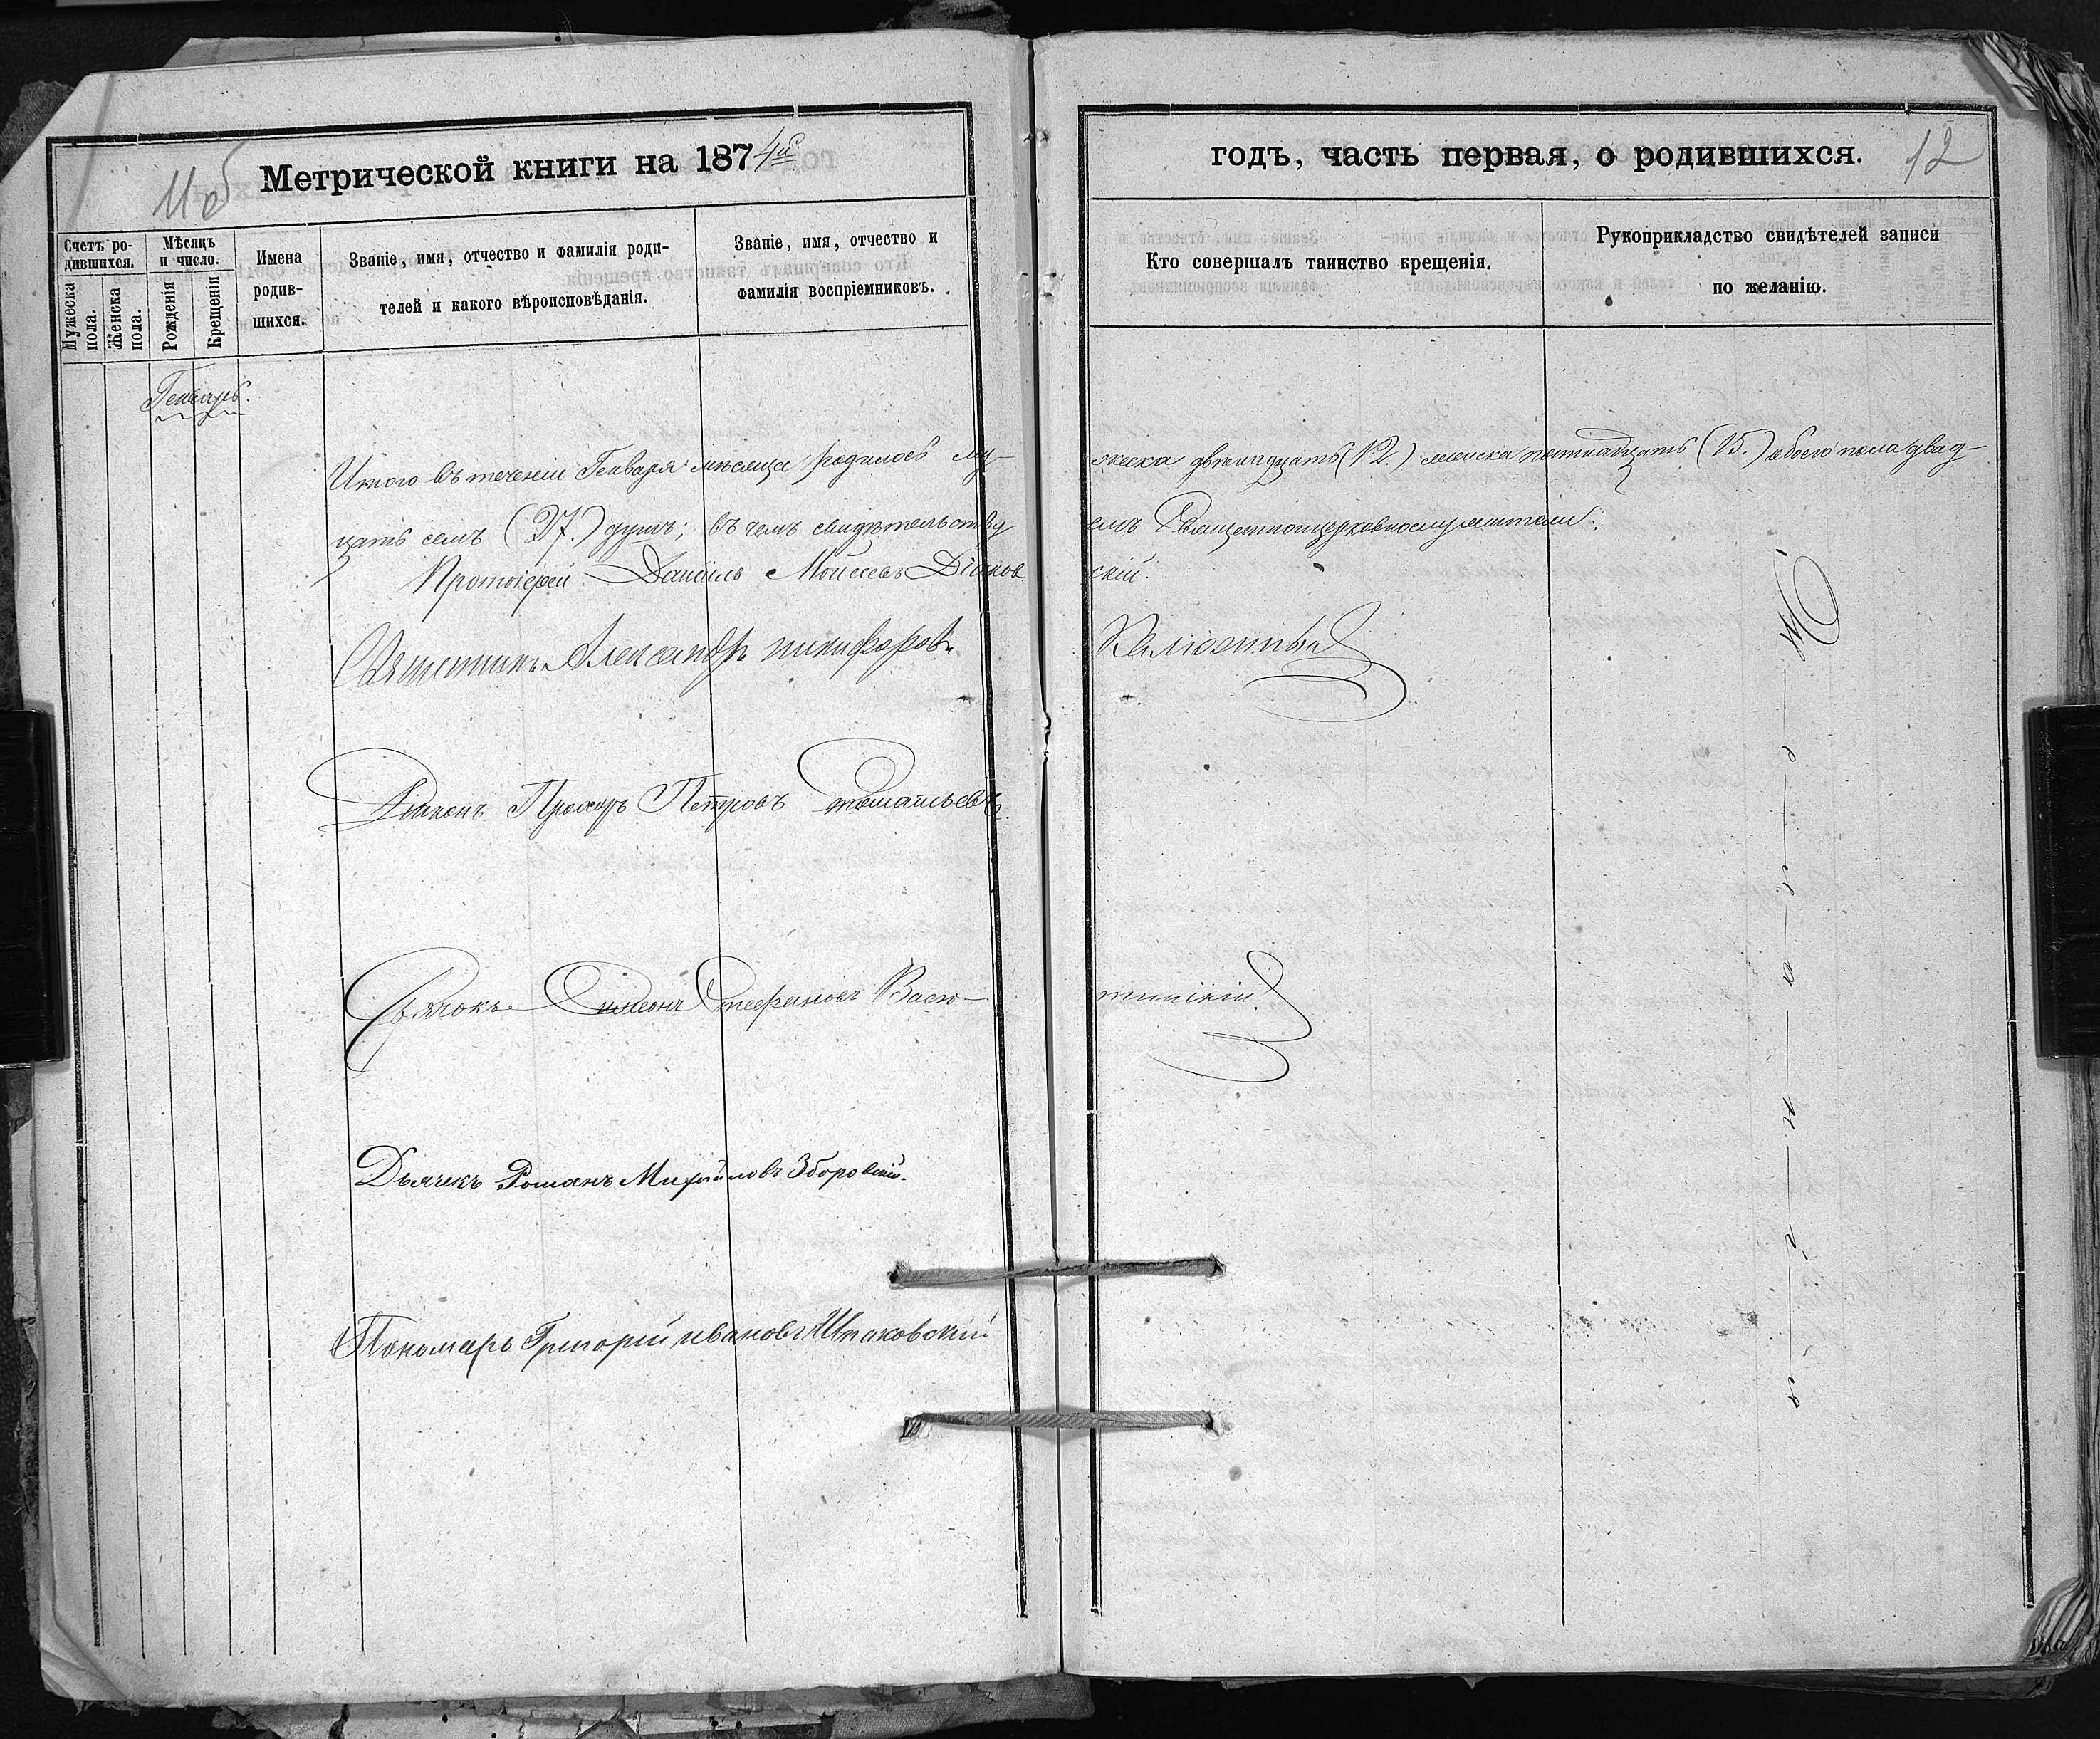 11 об
Метрической книги на 1874й
годъ, часть первая, о родившихся.
12
Счетъ ро-
дившихся.
Мужеска
пола.
Женска
пола.
Мѣсяцъ
и число.
Рожденія
Крещенія
Имена
родив-
шихся.
Званіе, имя, отчество и фамилія роди-
телей и какого вѣроисповѣданія.
Званіе, имя, отчество и
фамилія воспріемниковъ.
Кто совершалъ таинство крещенія.
Рукоприкладство свидѣтелей записи
по желанію.
Генварь.
Итого въ теченіи Генваря мѣсяца родилось му-
жеска двѣнадцать (12.) женска пятнадцать (15.) обоего пола двад-
цать семь (27.) душъ; въ чемъ свидѣтельству
емъ Священноцерковнослужители:
Протоіерей Даніилъ Моисеевъ Дьяков
скій.
Священникъ Александръ Никифоровъ
Діаконъ Прохоръ Петровъ
Дьячокъ Симеонъ Стефановъ
Дьячекъ Романъ Михайловъ Зборовскій.
Пономарь Григорій Ивановъ Шпаковскій